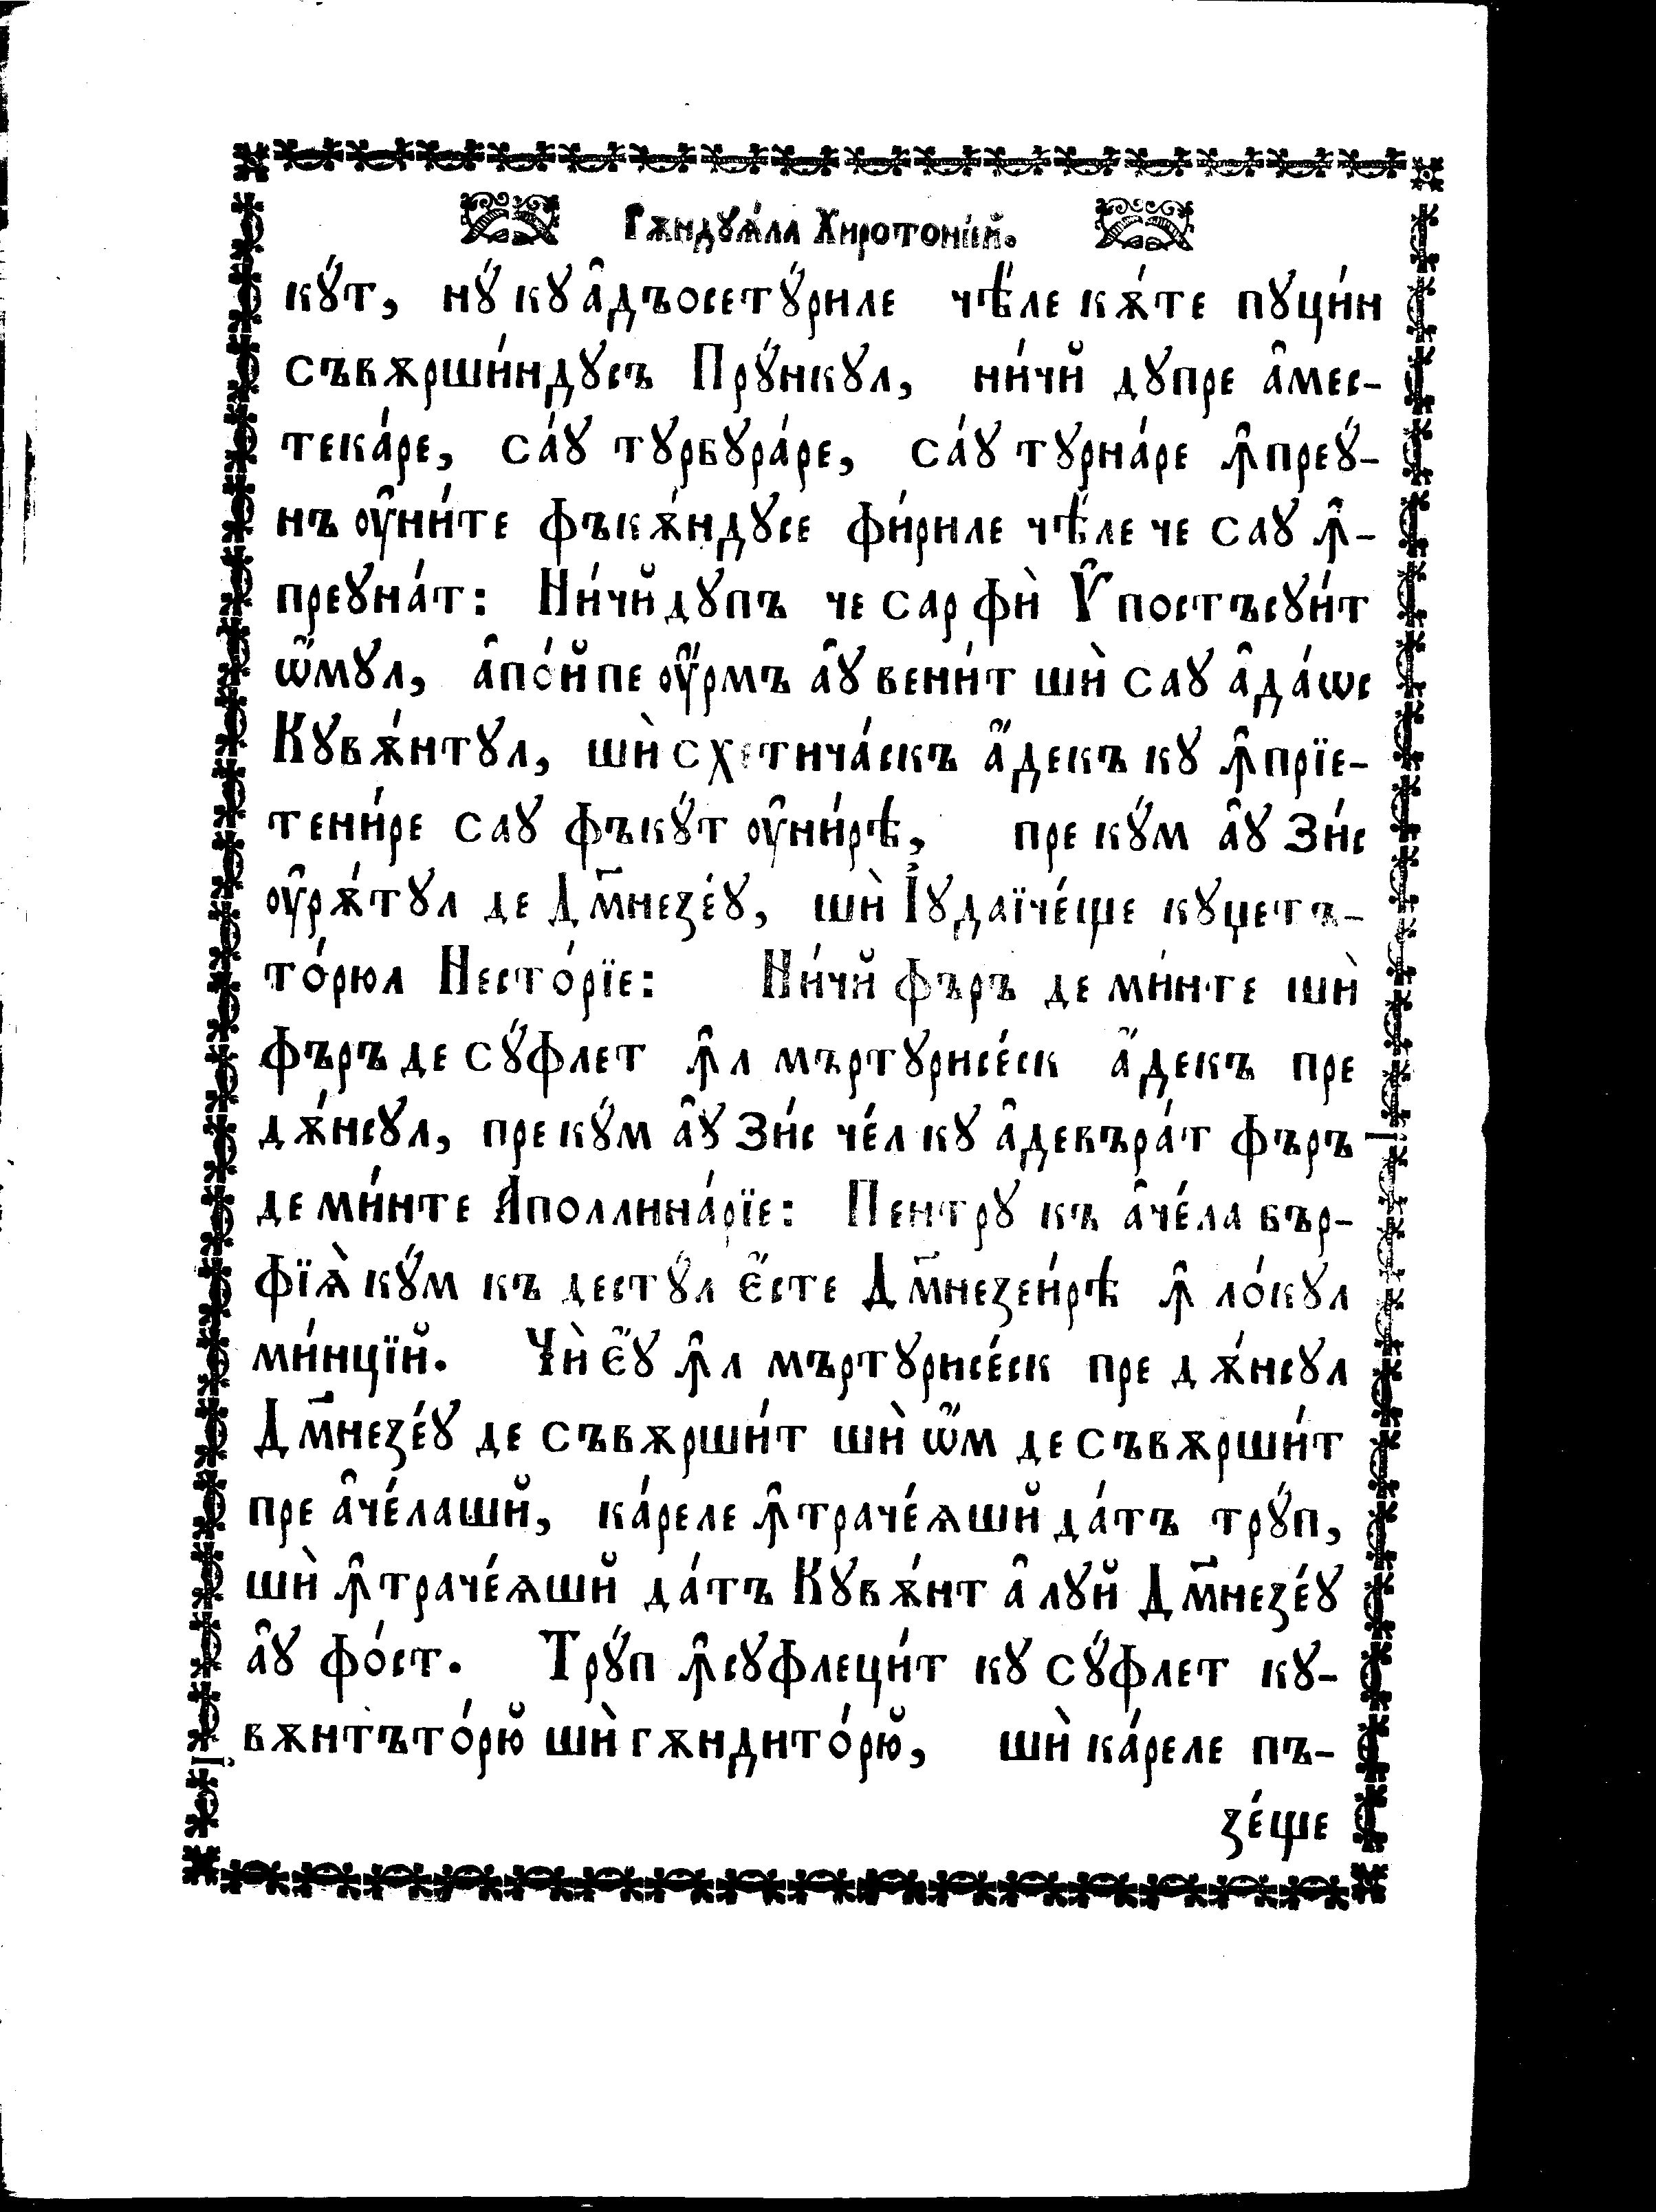 Гѫндуѧ́ла Хиротоні́и̌.
кꙋ́т, нꙋ́ кꙋ а҆дъосетꙋ́риле чѣ́ле кѫ́те пꙋци́н
съвѫрши́ндꙋсъ Прꙋ́нкꙋл, ни́чй дꙋпре а҆мес-
тека́ре, са́ꙋ тꙋрбꙋра́ре, са́ꙋ тꙋрна́ре ꙟ҆преꙋ́-
нъ оу҆ни́те фъкѫ́ндꙋсе фи́риле чѣ́ле че саꙋ ꙟ҆-
преꙋна́т: Ни́чй дꙋпъ че сар фѝ Ѵ҆постъсꙋи́т
ѡ҆́мꙋл, а҆по́й пе оу҆́рмъ а҆ꙋ вени́т шѝ саꙋ а҆да́ѡс
Кꙋвѫ́нтꙋл, шѝ схетича́скъ а҆́декъ кꙋ ꙟ҆прїе-
тени́ре саꙋ фъкꙋ́т оу҆ни́рѣ, пре кꙋ́м а҆ꙋ Зи́с
оу҆рѫ́тꙋл де Дм҃незе́ꙋ, шѝ І҆ꙋдаїче́ще кꙋџетъ-
то́рюл Несто́рїе: Ни́чй фъръ де ми́нте шѝ
фъръ де сꙋ́флет ꙟ҆л мъртꙋрисе́ск а҆́декъ пре
дѫ́нсꙋл, пре кꙋ́м а҆ꙋ Зи́с че́л кꙋ а҆девъра́т фъръ
де ми́нте А҆поллина́рїе: Пентрꙋ къ а҆че́ла бър-
фїѧ̀ кꙋ́м къ дестꙋ́л є҆́сте Дм҃незеи́рѣ ꙟ҆ ло́кꙋл
ми́нцїй. Чѝ є҆́ꙋ ꙟ҆л мъртꙋрисе́ск пре дѫ́нсꙋл
Дм҃незе́ꙋ де съвѫрши́т шѝ ѡ҆́м де съвѫрши́т
пре а҆че́лашй, ка́реле ꙟ҆траче́ѧшй да́тъ трꙋ́п,
шѝ ꙟ҆траче́ѧшй да́тъ Кꙋвѫ́нт а҆ лꙋй Дм҃незе́ꙋ
а҆ꙋ фо́ст. Трꙋ́п ꙟ҆сꙋфлеци́т кꙋ сꙋ́флет кꙋ-
вѫнтъто́рю̆ шѝ гѫндито́рю̆, шѝ ка́реле пъ-
зе́ще